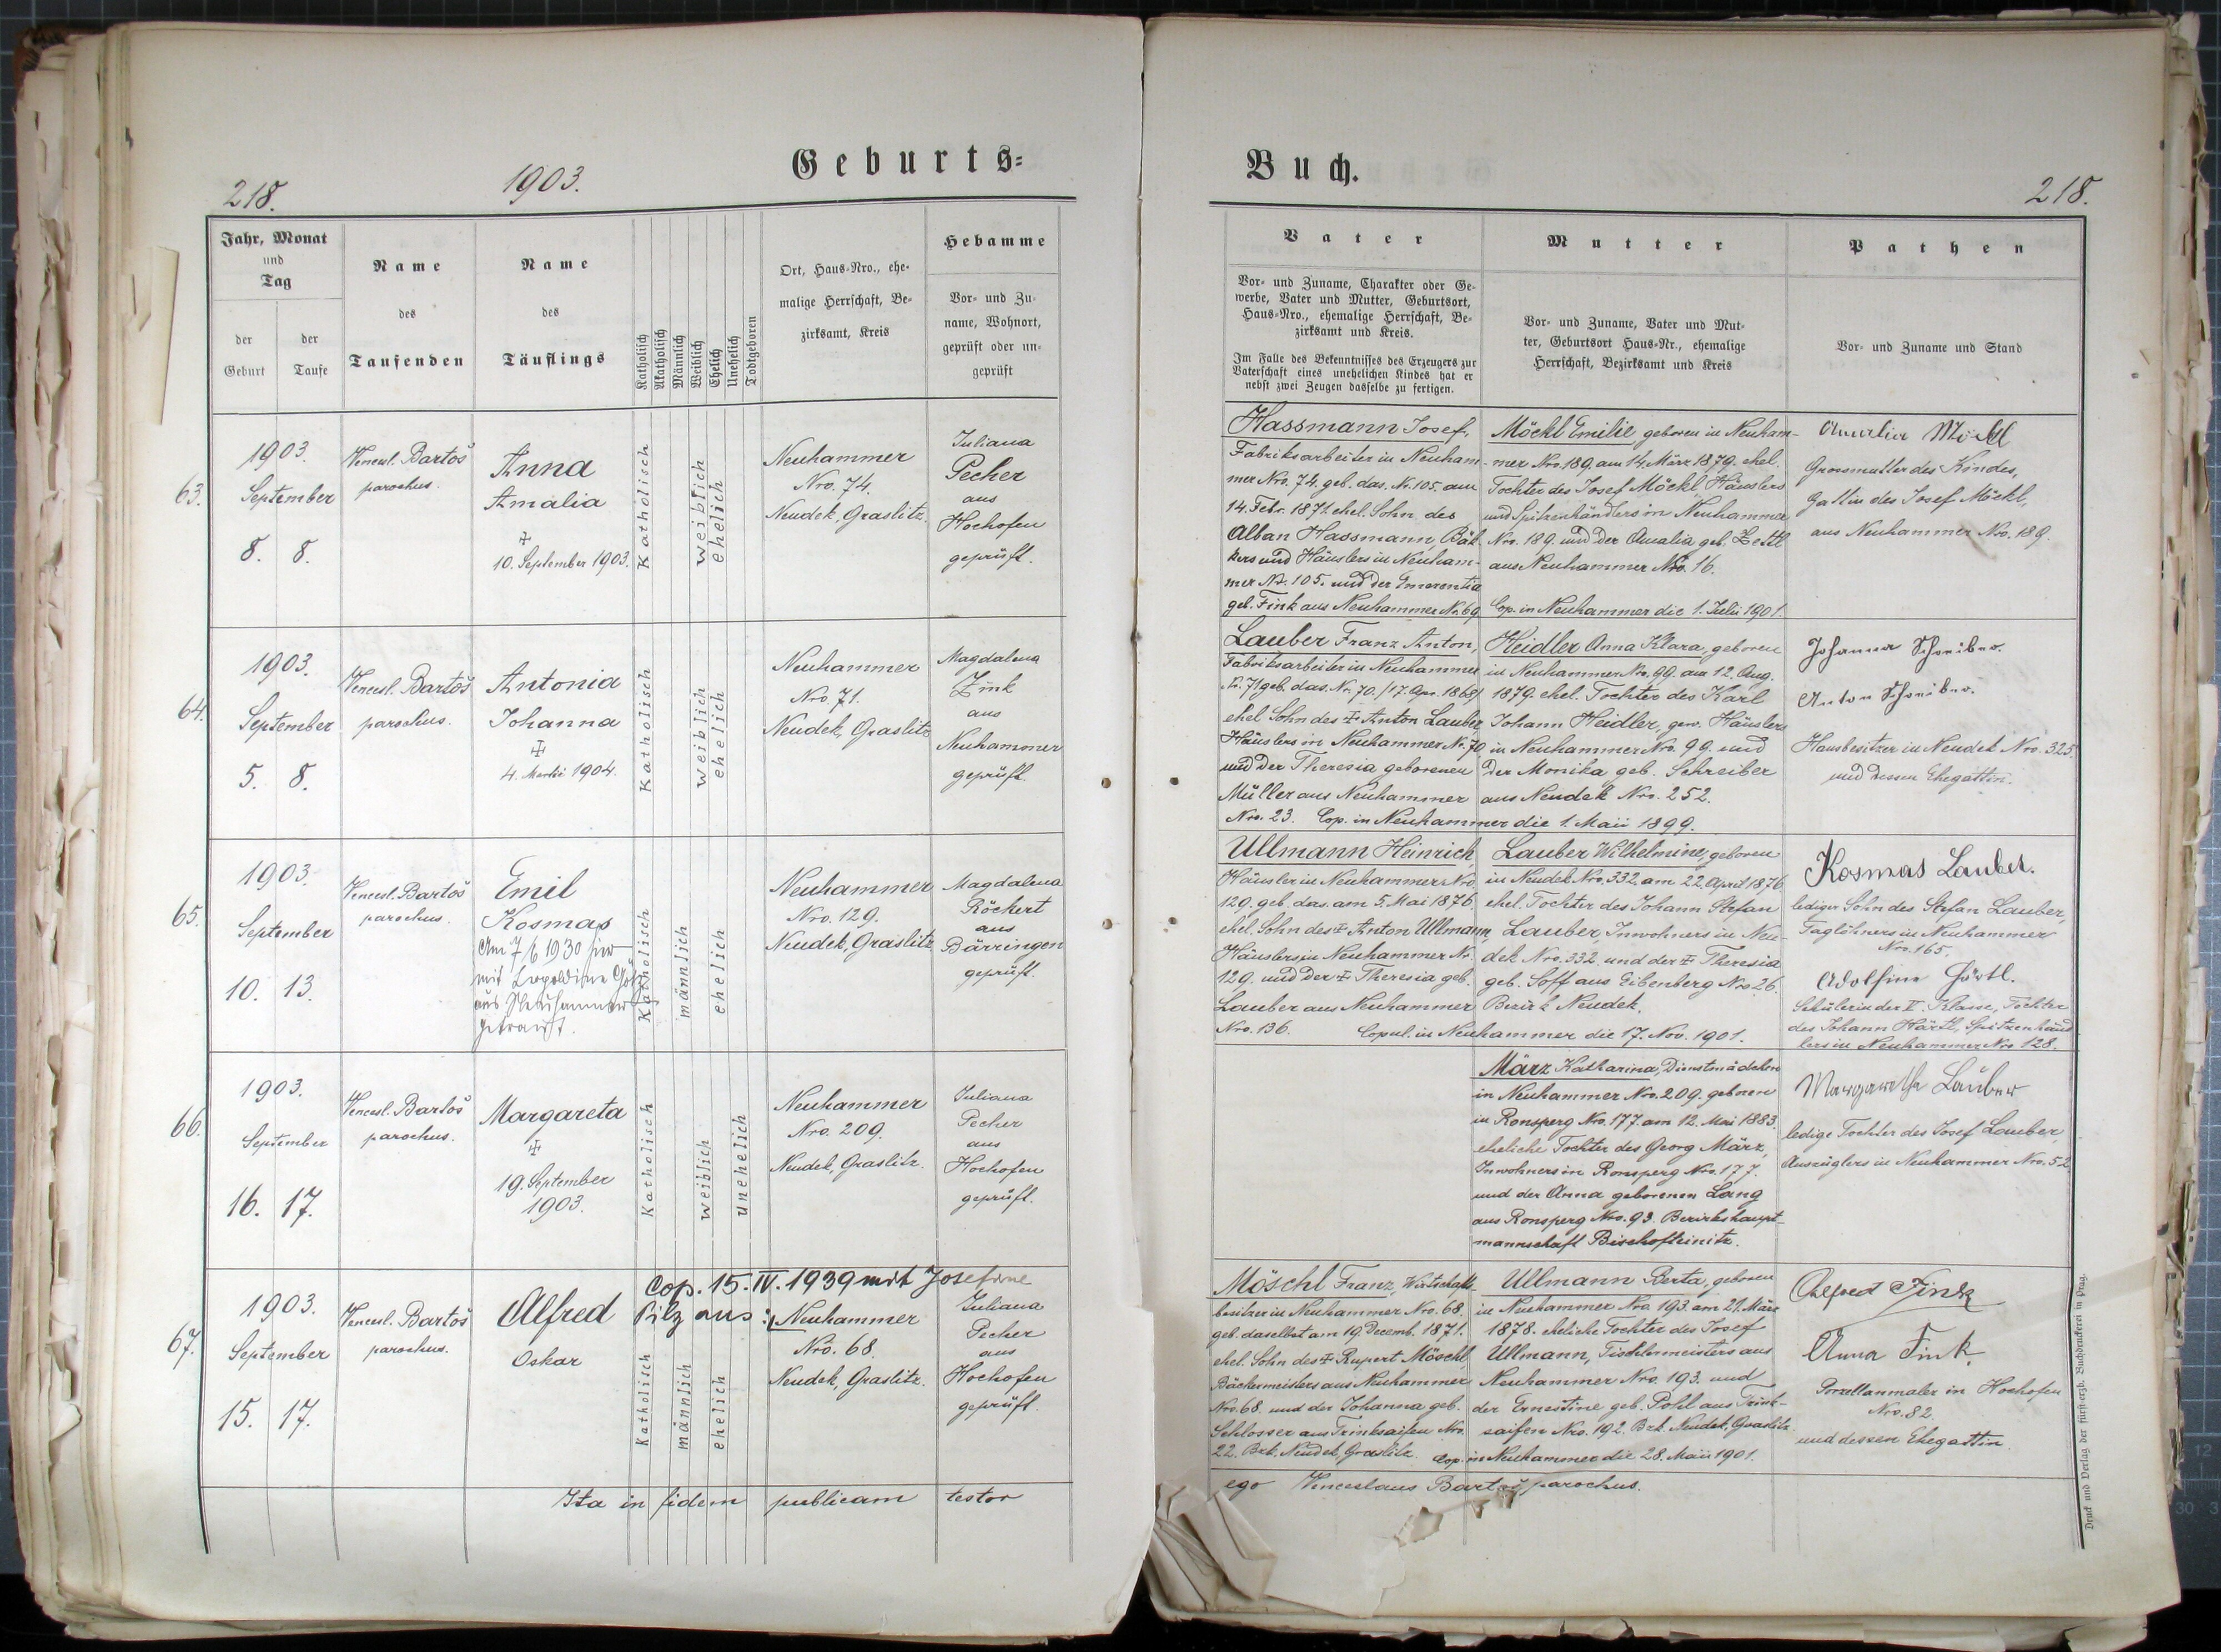 Geburts=
Buch.
218.
1903.
218.
Jahr, Monat
und
Tag
der
Geburt
der
Taufe
Name
des
Taufenden
Name
des
Täuflings
Katholisch
Akatholisch
Männlich
Weiblich
Ehelich
Unehelich
Todtgeboren
Ort, Haus-Nro., ehe-
malige Herrschaft, Be-
zirksamt, Kreis
Hebamme
Vor- und Zu-
name, Wohnort,
geprüft oder un-
geprüft
Vater
Vor- und Zuname, Charakter oder Ge-
werbe, Vater und Mutter, Geburtsort,
Haus-Nro., ehemalige Herrschaft, Be-
zirksamt und Kreis.
Im Falle des Bekenntnisses des Erzeugers zur
Vaterschaft eines unehelichen Kindes hat er
nebst zwei Zeugen dasselbe zu fertigen.
Mutter
Vor- und Zuname, Vater und Mut-
ter, Geburtsort Haus-Nr., ehemalige
Herrschaft, Bezirksamt und Kreis
Pathen
Vor- und Zuname und Stand
63.
1903.
September
8. 8.
Vencesl. Bartoš
parochus.
Anna
Amalia
10. September 1903.
Katholisch
weiblich
ehelich
Neuhammer
Nro. 74.
Neudek, Graslitz.
Juliana
Pecher
aus
Hochofen
geprüft.
Hassmann Josef,
Fabriksarbeiter in Neuham-
mer Nro. 74. geb. das. N. 105. am
14. Febr. 1871. ehel. Sohn des
Alban Hassmann Bäk-
kers und Häuslers in Neuham-
mer N. 105. und der Emerentia
geb. Fink aus Neuhammer N. 69.
Möckl Emilie geboren in Neuham-
mer Nro. 189. am 14. März 1879. ehel.
Tochter des Josef Möckl, Häuslers
und Spitzenhändlers in Neuhammer
Nro. 189. und der Amalia geb. Zettl
aus Neuhammer Nro. 16.
Cop. in Neuhammer die 1. Julii 1901.
Amalia Möckl
Grossmutter des Kindes,
Gattin des Josef Möckl,
aus Neuhammer Nro. 189.
64.
1903.
September
5. 8.
Vencesl. Bartoš
parochus.
Antonia
Johanna
4. Martii 1904.
Katholisch
weiblich
ehelich
Neuhammer
Nro. 71.
Neudek, Graslitz
Magdalena
Zink
aus
Neuhammer
geprüft.
Lauber Franz Anton,
Fabriksarbeiter in Neuhammer
N. 71 geb. das. Nr. 70. /17. Apr. 1868/
ehel. Sohn des ‡ Anton Lauber,
Häuslers in Neuhammer N. 70
und der Theresia geborenen
Müller aus Neuhammer
Nro. 23. Cop. in Neuhammer die 1. Maii 1899.
Heidler Anna Klara, geboren
in Neuhammer Nro. 99. am 12. Aug.
1879. ehel. Tochter des Karl
Johann Heidler, gew. Häuslers
in Neuhammer Nro. 99. und
der Monika geb. Schreiber
aus Neudek Nro. 252.
Johanna Schreiber.
Anton Schreiber.
Hausbesitzer in Neudek Nro. 325
und dessen Ehegattin.
65.
1903.
September
10. 13.
Vencesl. Bartoš
parochus.
Emil
Kosmas
Am 7/6 1930 hier
mit Leopoldine Götz
aus Neuhammer
getraut.
Katholisch
männlich
ehelich
Neuhammer
Nro. 129.
Neudek, Graslitz
Magdalena
Röckert
aus
Bärringen
geprüft.
Ullmann Heinrich
Häusler in Neuhammer Nro.
129. geb. das. am 5. Mai 1876.
ehel. Sohn des ‡ Anton Ullmann,
Häuslers in Neuhammer N.
129. und der ‡ Theresia geb.
Lauber aus Neuhammer
Nro. 136. Copul. in Neuhammer die 17. Nov. 1901.
Lauber Wilhelmine, geboren
in Neudek Nro. 332. am 22. April 1876
ehel. Tochter des Johann Stefan
Lauber, Inwohners in Neu-
dek Nro. 332 und der ‡ Theresia
geb. Soff aus Eibenberg Nro 26.
Bezirk Neudek.
Kosmas Lauber.
lediger Sohn des Stefan Lauber,
Taglöhners in Neuhammer
Nro. 165.
Adolfine Härtl.
Schülerin der V. Klasse, Tochter
des Johann Härtl, Spitzenhänd
lers in Neuhammer Nro 128.
66.
1903.
September
16. 17.
Vencesl. Bartoš
parochus.
Margareta
19. September
1903.
Katholisch
weiblich
unehelich
Neuhammer
Nro. 209.
Neudek, Graslitz.
Juliana
Pecher
aus
Hochofen
geprüft.
März Katharina, Dienstmädchen
in Neuhammer Nro. 209. geboren
in Ronsperg Nro. 177. am 12. Mai 1883.
eheliche Tochter des Georg März,
Inwohners in Ronsperg Nro. 177.
und der Anna geborenen Lang
aus Ronsperg Nro. 93. Bezirkshaupt-
mannschaft Bischofteinitz.
Margaretha Lauber
ledige Tochter des Josef Lauber,
Auszüglers in Neuhammer Nro. 52
67.
1903.
September
15. 17.
Vencesl. Bartoš
parochus.
Alfred
Oskar
Cop. 15. IV. 1939 mit Josefine
Pilz aus :
Katholisch
männlich
ehelich
Neuhammer
Nro. 68.
Neudek, Graslitz.
Juliana
Pecher
aus
Hochofen
geprüft.
Möschl Franz, Wirtschafts-
besitzer in Neuhammer Nro. 68.
geb. daselbst am 19. Decemb. 1871.
ehel. Sohn des ‡ Rupert Möschl,
Bäckermeisters aus Neuhammer
Nro. 68. und der Johanna geb.
Schlosser aus Trinksaifen Nro.
22. Bzk. Neudek, Graslitz. Cop. in Neuhammer die 28. Maii 1901.
Ullmann Berta, geboren
in Neuhammer Nro 193. am 21. März
1878. eheliche Tochter des Josef
Ullmann, Tischlermeisters aus
Neuhammer Nro. 193. und
der Ernestine geb. Pohl aus Trink-
saifen Nro. 192. Bzk. Neudek, Graslitz
Alfred Fink
Anna Fink.
Porzellanmaler in Hochofen
Nro. 82.
und dessen Ehegattin.
Ita in fidem publicam testor
ego Venceslaus Bartoš parochus.
Druck und Verlag der fürst-erzb. Buchdruckerei in Prag.